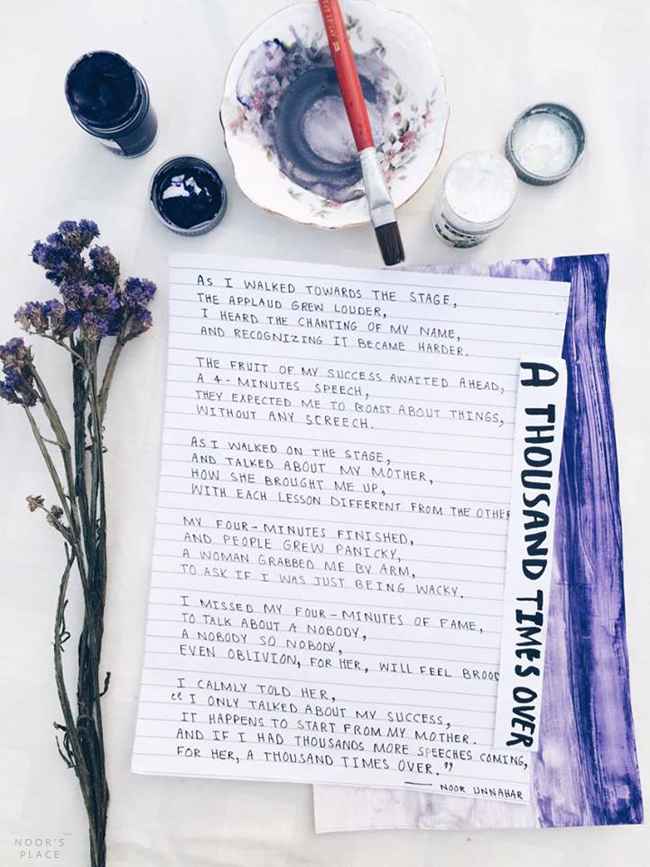 AS I WALKED TOWARDS THE STAGE,
THE APPLAUD GREW LOUDER,
I HEARD THE CHANTING OF MY NAME,
AND RECOGNIZING IT BECAME HARDER.
THE FRUIT OF MY SUCCESS AWAITED AHEAD,
A 4-MINUTES SPEECH,
THEY EXPECTED ME TO BOAST ABOUT THINGS,
WITHOUT ANY SCREECH.
AS I WALKED ON THE STAGE,
AND TALKED ABOUT MY MOTHER,
HOW SHE BROUGHT ME UP,
WITH EACH LESSON DIFFERENT FROM THE OTHER
MY FOUR-MINUTES FINISHED,
AND PEOPLE GREW PANICKY,
A WOMAN GRABBED ME BY ARM,
TO ASK IF I WAS JUST BEING WACKY.
I MISSED MY FOUR-MINUTES OF FAME,
TO TALK ABOUT A NOBODY,
A NOBODY SO NOBODY,
EVEN OBLIVION, FOR HER, WILL FEEL BROOD
I CALMLY TOLD HER,
“I ONLY TALKED ABOUT MY SUCCESS,
IT HAPPENS TO START FROM MY MOTHER.
AND IF I HAD THOUSANDS MORE SPEECHES COMING,
FOR HER, A THOUSAND TIMES OVER.”
— NOOR UNNAHAR
A THOUSAND TIMES OVER
NOOR'S
PLACE